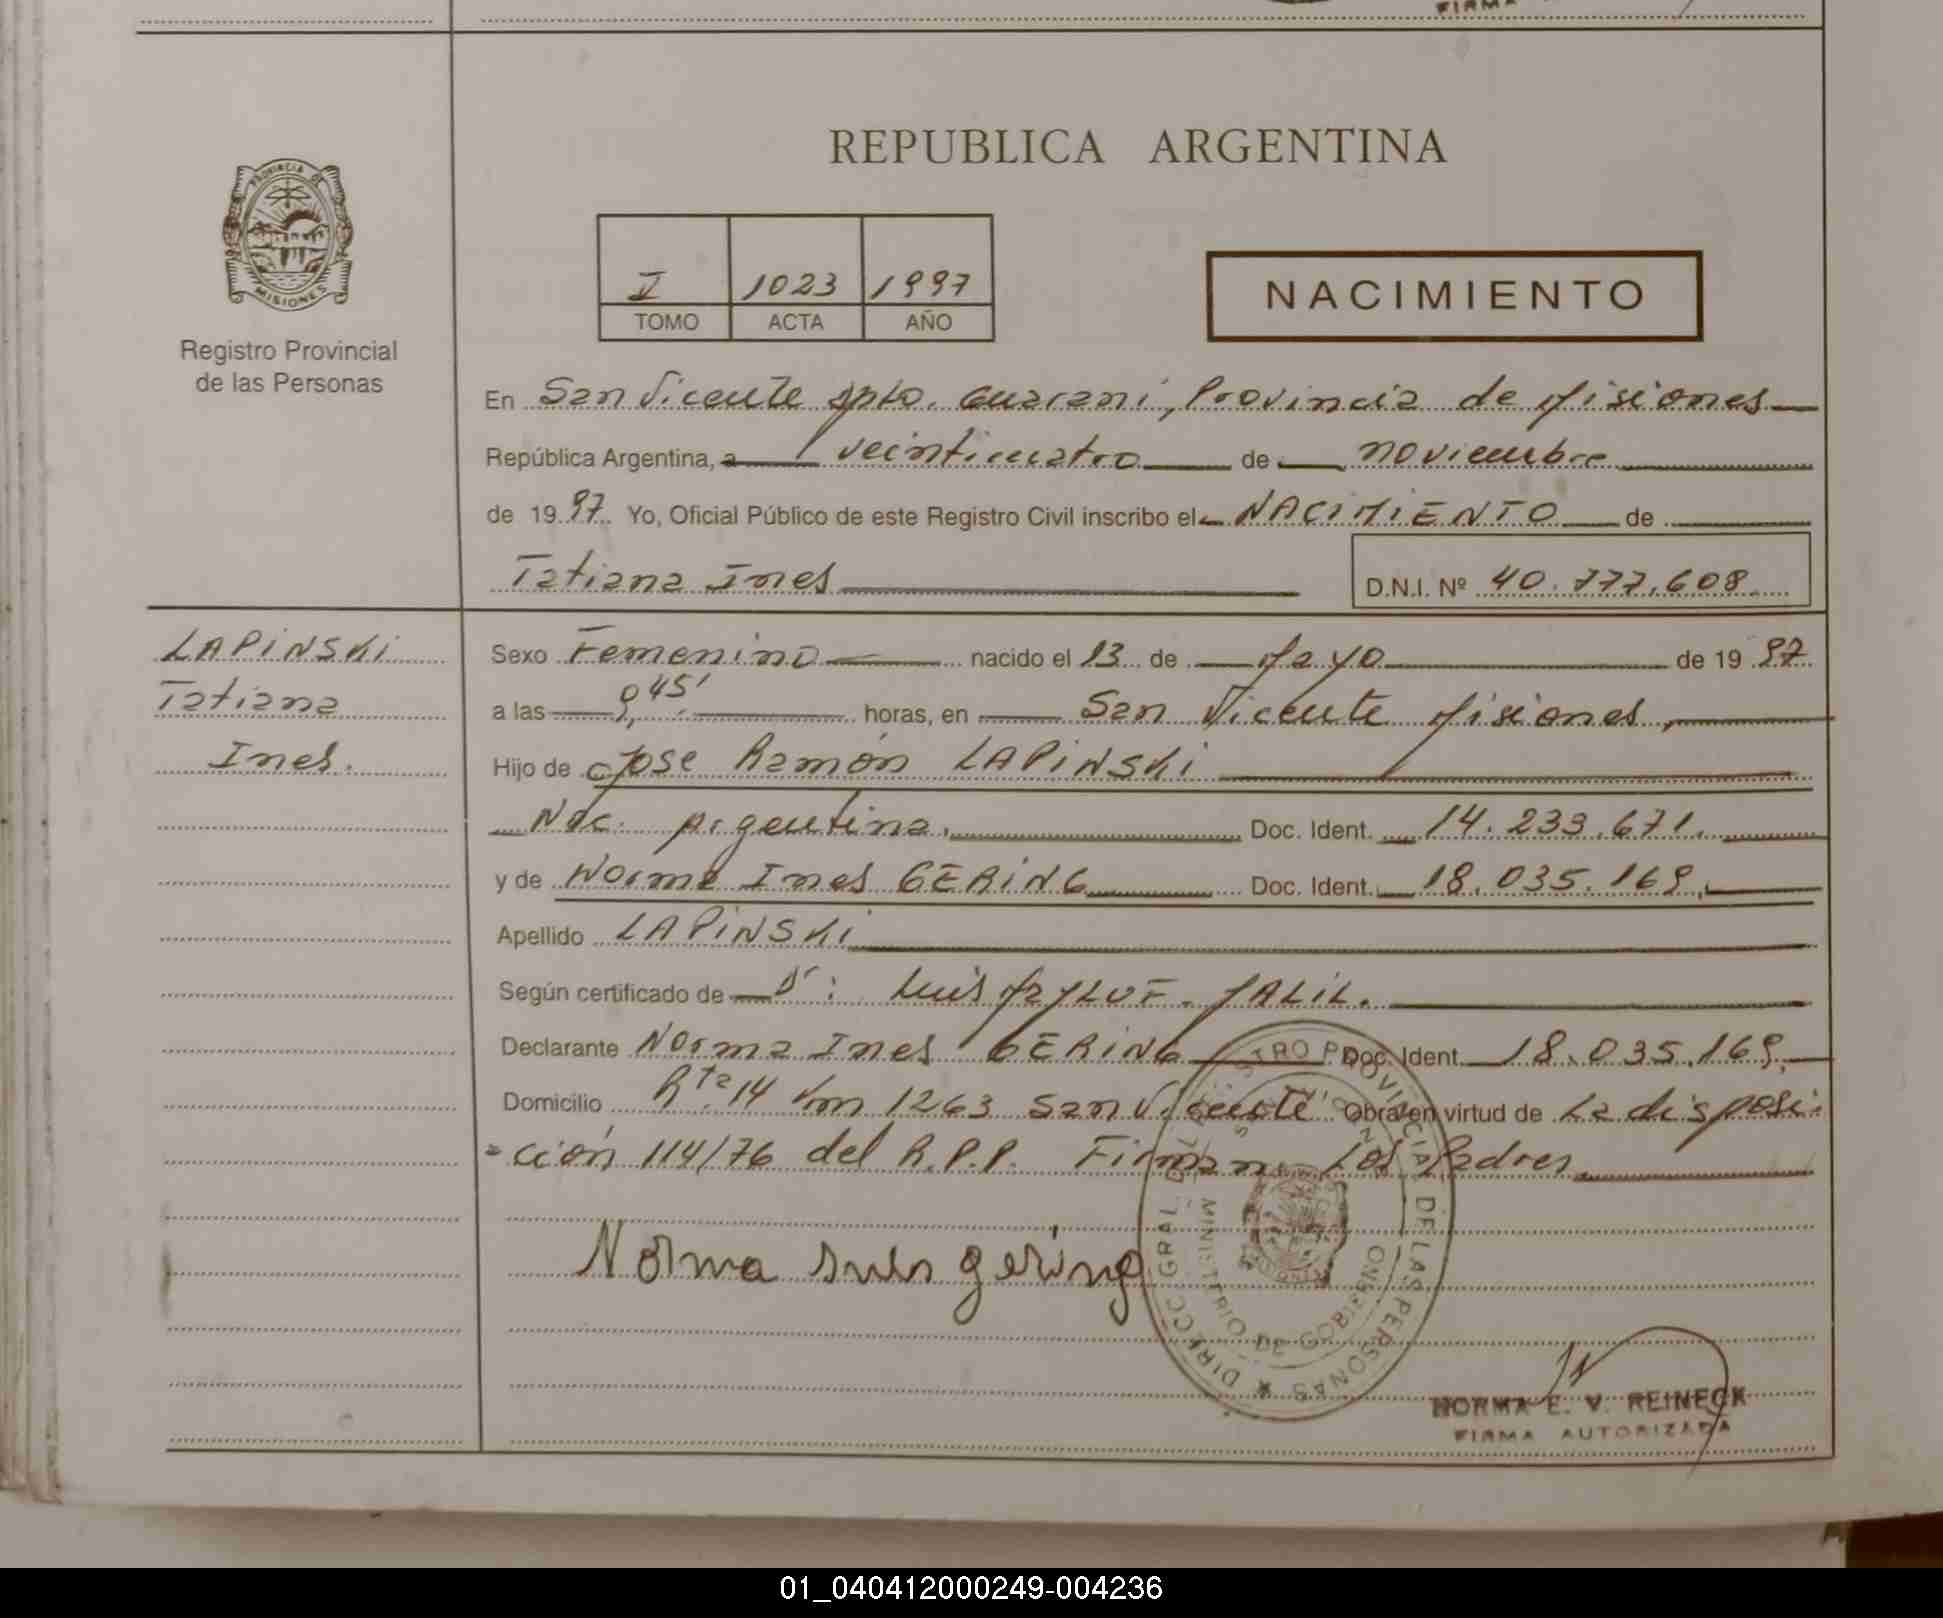 FIRMA
REPUBLICA ARGENTINA
PROVINCIA DE
MISIONES
Registro Provincial
de las Personas
I 1023 1997
TOMO ACTA AÑO
NACIMIENTO
En San Vicente Dpto. Guarani, Provincia de Misiones
República Argentina, a veinticuatro de noviembre
de 1997 Yo, Oficial Público de este Registro Civil inscribo el NACIMIENTO de
Tatiana Ines D.N.I. Nº 40.777.608
LAPINSKI
Tatiana
Ines.
Sexo Femenino nacido el 13 de Mayo de 1997
a las 9,45' horas, en San Vicente Misiones,
Hijo de Jose Ramón LAPINSKI
Nac. Argentina. Doc. Ident. 14.233.671.
y de Norma Ines GERING Doc. Ident. 18.035.169,
Apellido LAPINSKI
Según certificado de Dr: Luis JALIL.
Declarante Norma Ines GERING Doc. Ident. 18.035.169,
Domicilio Rta. 14 Km 1263 San Vicente Obra en virtud de La disposi-
-ción 114/76 del R.P.P. Firman Los Padres
Norma Ines gering
DIRECC GRAL DEL REGISTRO PROVINCIAL DE LAS PERSONAS
MINISTERIO DE GOBIERNO
MISIONES
NORMA E. V. REINECK
FIRMA AUTORIZADA
01_040412000249-004236